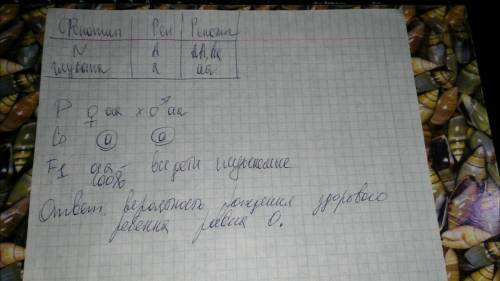 Фенотип Ген Генотип
N А АА, Аа
глухота а аа
P ♀ аа х ♂ аа
G а а
F1 аа все дети глухонемые
100%
Ответ: вероятность рождения здорового
ребенка равна 0.